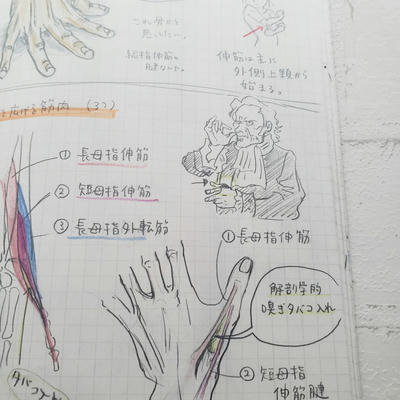 これ骨かと
思いたい。
総指伸筋の
腱なんや。
伸筋は主に
外側上顆から
始まる。
広げる筋肉 (3つ)
① 長母指伸筋
② 短母指伸筋
③ 長母指外転筋
① 長母指伸筋
解剖学的
嗅ぎタバコ入れ
② 短母指
伸筋腱